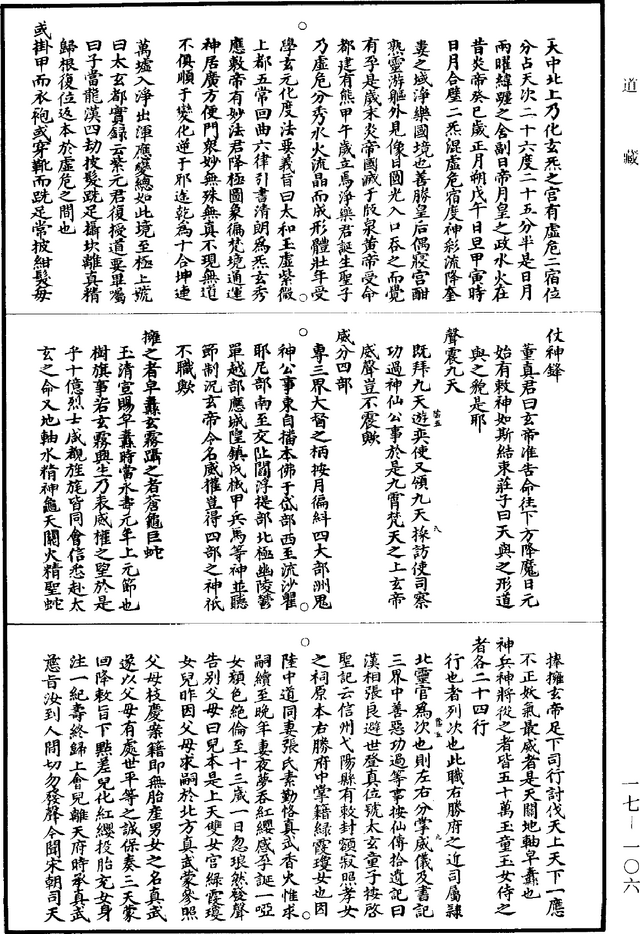 道藏
天中北上乃化玄炁之宮有虛危二宿位
分占天次二十六度二十五分半是日月
兩曜緯躔之舍副日帝月皇之政水火在
昔炎帝癸巳歲正月朔戊午日旦甲寅時
日月合璧二炁混虛危宿度神彩流降奎
婁之域淨樂國境也善勝皇后偶寢宮酣
熟靈游軀外見像日圓光入口吞之而覺
有孕是歲末炎帝國滅于阪泉黃帝受命
都建有熊甲午歲立為淨樂君誕生聖子
乃虛危分秀水火流晶而成形體壯年受
學玄元化度法要義旨曰太和玉虛紫微
上都五常回曲六律引書清朗為炁玄秀
應數帝有妙法君降極圖象徧梵境通運
神居廣方便門衆妙無殊無真不現無道
不俱順于變化逆于邪迄乾為十合坤連
萬墟入淨出渾應變總如此境至極上號
曰太玄都實錄云紫元君復授道要畢囑
曰子當龍漢四劫披髮跣足攝坎離真精
歸根復位返本於虛危之間也
或掛甲而衣袍或穿靴而跣足常披紺髮每
仗神鋒
董真君曰玄帝准告命往下方降魔日元
始有敕神如斯結束莊子曰天與之形道
與之貌是耶
聲震九天
既拜九天遊奕使又領九天採訪使司察
功過神仙公事於是九霄梵天之上玄帝
威聲豈不震歟
威分四部
專三界大督之柄按月徧糾四大部洲鬼
神公事東自播本佛于岱部西至流沙瞿
耶尼部南至交阯閻浮提部北極幽陵鬱
單越部應城隍鎮戍械甲兵馬等神並聽
節制況玄帝令名威權豈得四部之神祇
不職歟
擁之者皁纛玄霧躡之者蒼龜巨蛇
玉清宣賜皁纛時當永壽元年上元節也
樹旗事若玄霧興生乃表威權之望於是
乎十億烈士咸觀旌旄皆同會信悉赴太
玄之命又地軸水精神龜天關火精聖蛇
捧擁玄帝足下司行討伐天上天下一應
不正妖氣最威者是天關地軸皁纛也
神兵神將從之者皆五十萬玉童玉女侍之
者各二十四行
行也者列次也此職右勝府之近司屬隷
北靈官為次也則左右分掌威儀及書記
三界中善惡功過等事按仙傳拾遺記曰
漢相張良避世登真位號太玄童子按啓
聖記云信州弋陽縣有敕封額寂照孝女
之祠原本右勝府中掌籍綠霞瓊女也因
陸中道同妻張氏素勤恪真武香火惟求
嗣續至晚年妻夜夢吞紅纓感孕誕一啞
女顏色絶倫至十三歲一日忽琅然發聲
告別父母曰兒本是上天雙女官綠霞瓊
女兒昨因父母求嗣於北方真武蒙參照
父母枝慶案籍即無胎產男女之名真武
遂以父母有處世平等之誠保奏三天蒙
回降敕旨下點差兒化紅纓投胎充女身
注一紀壽終歸上會兒離天府時承真武
慈旨汝到人間切勿發聲今聞宋朝司天
一七－一〇六